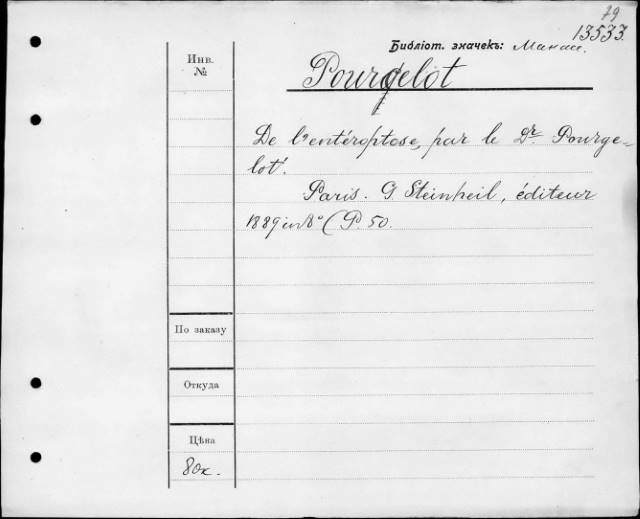 79
13533.
Библіот. значекъ:
Инв.
№
Pourgelot
De l'entéroptose, par le Dr. Pourge-
lot.
Paris. G. Steinheil, éditeur
1889 in 8° (P. 50.
По заказу
Откуда
Цѣна
80к.